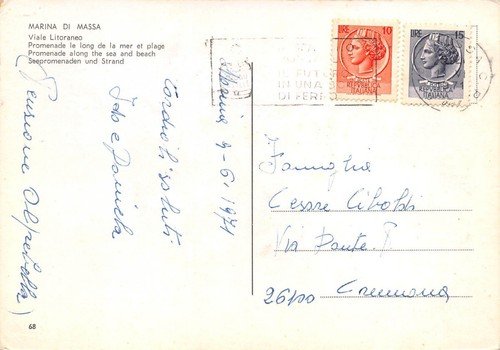 MARINA DI MASSA
Viale Litoraneo
Promenade le long de la mer et plage
Promenade along the sea and beach
Seepromenaden und Strand
Marina 4-6-1971
Cordiali saluti
Daniela
Pensione
68
LIRE 10
REPVBBLICA
ITALIANA
LIRE 15
REPVBBLICA
ITALIANA
IN UNA
DI FERI
Famiglia
Cesare
Via Dante
26100 Cremona